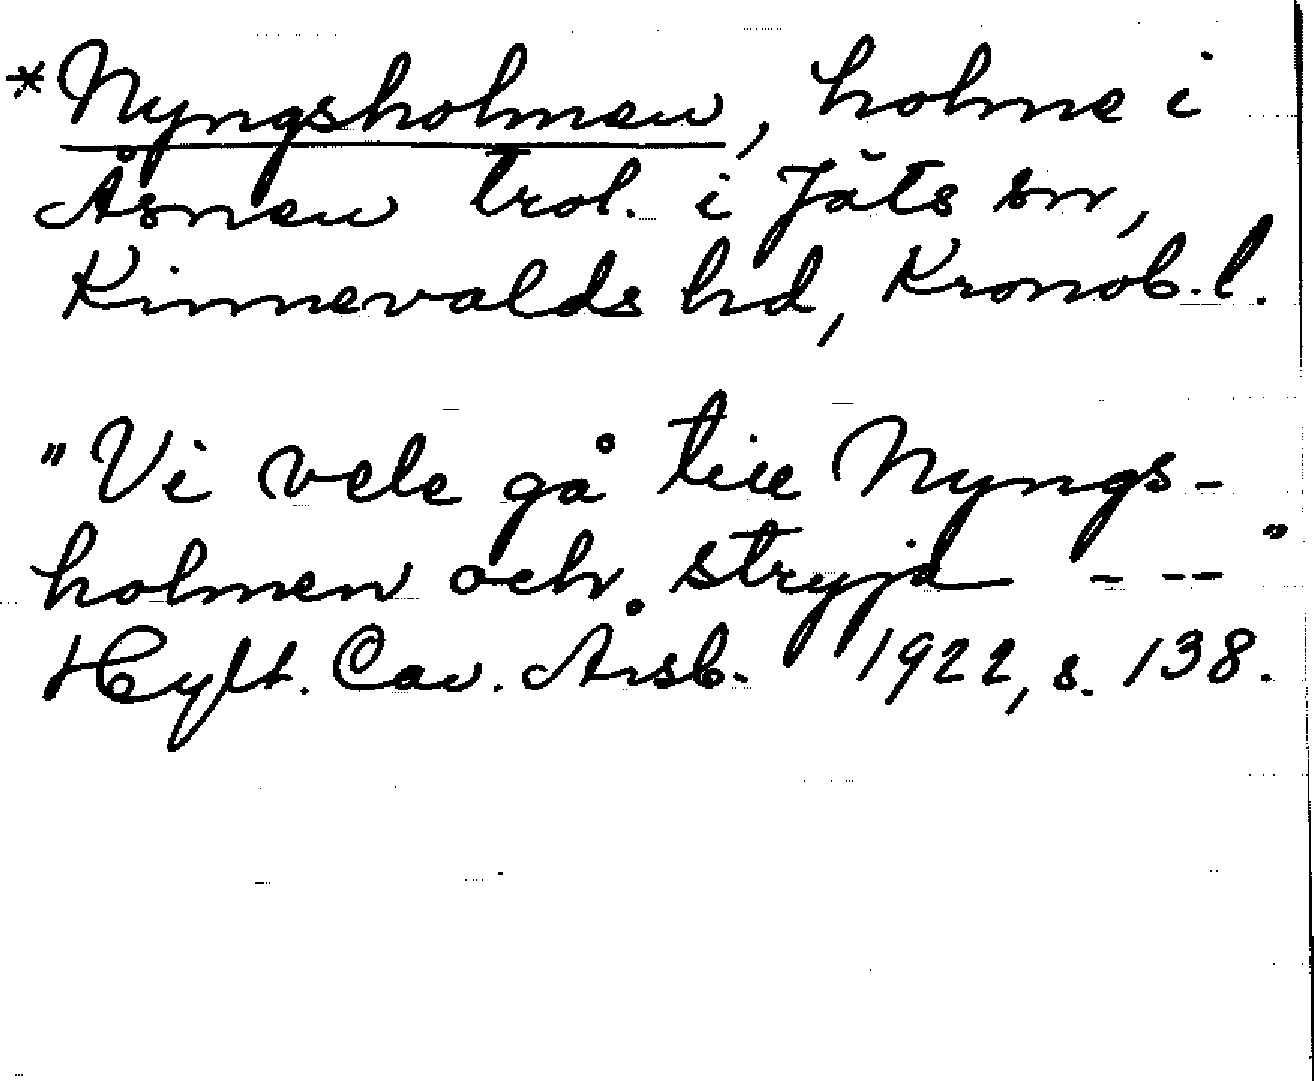 *Nyngsholmen, holme i
Åsnen trol. i Jäts sn,
Kinnevalds hd, Kronob. l.
"Vi vele gå till Nyngs-
holmen och stryja - - - "
Hylt. Cav. Årsb. 1922, s. 138.